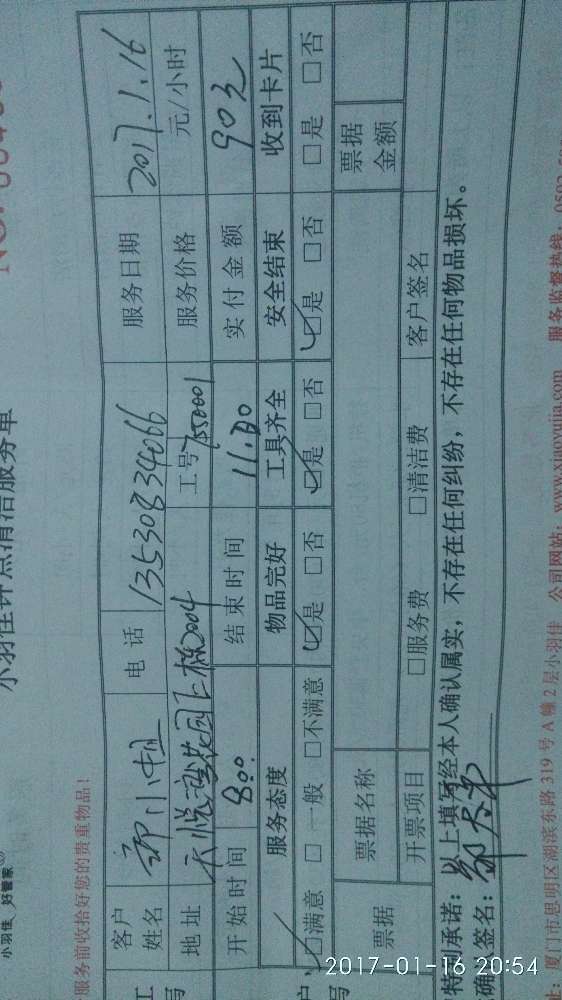 小羽佳 好管家
小羽佳钟点清洁服务单
服务前收拾好您的贵重物品！
客户姓名 电话 13530834066 服务日期 2017.1.16
地址 天悦湾花园2栋2004 工号 755001 服务价格 元/小时
开始时间 8:00 结束时间 11:00 实付金额 90元
服务态度 物品完好 工具齐全 安全结束 收到卡片
☑满意 □一般 □不满意 ☑是 □否 ☑是 □否 ☑是 □否 □是 □否
票据 票据名称 票据金额
开票项目 □服务费 □清洁费 客户签名
特别承诺：以上填写经本人确认属实，不存在任何纠纷，不存在任何物品损坏。
确认签名：
址：厦门市思明区湖滨东路 319 号 A 幢 2 层小羽佳 公司网站：www.xiaoyujia.com 服务监督热线：0592-
2017-01-16 20:54